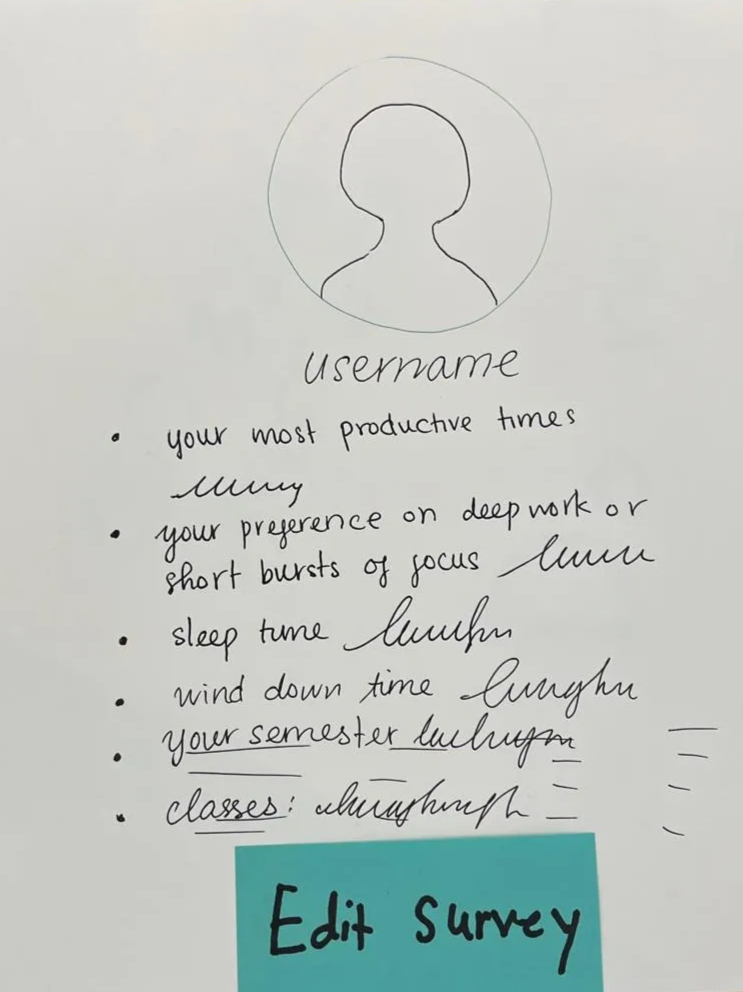 username
• your most productive times
• your preference on deep work or
short bursts of focus
• sleep time
• wind down time
• your semester
• classes:
Edit survey